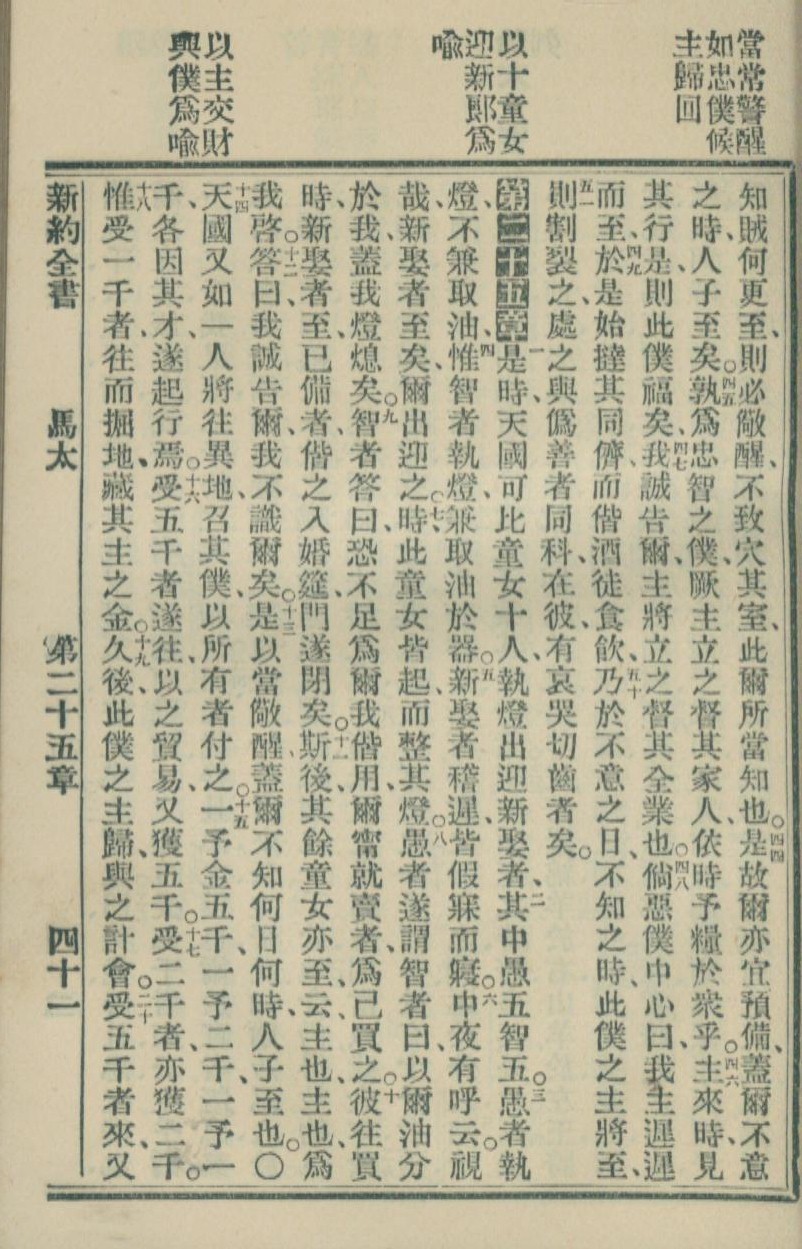 當常警醒
如忠僕候
主歸回
以十童女
迎新郎爲
喩
以主交財
與僕爲喩
知賊何更至、則必儆醒、不致穴其室、此爾所當知也。四四是故爾亦宜預備、蓋爾不意
之時、人子至矣。四五孰爲忠智之僕、厥主立之督其家人、依時予糧於衆乎。四六主來時、見
其行是、則此僕福矣、四七我誠告爾、主將立之督其全業也。四八倘惡僕中心曰、我主遲遲
而至、四九於是始撻其同儕、而偕酒徒食飲、五十乃於不意之日、不知之時、此僕之主將至、
五一則割裂之、處之與僞善者同科、在彼、有哀哭切齒者矣。
第二十五章 一是時、天國可比童女十人、執燈出迎新娶者、二其中愚五智五。三愚者執
燈、不兼取油、四惟智者執燈、兼取油於器。五新娶者稽遲、皆假寐而寢。六中夜有呼云。視
哉、新娶者至矣、爾出迎之。七時、此童女皆起、而整其燈。八愚者遂謂智者曰、以爾油分
於我、蓋我燈熄矣。九智者答曰、恐不足爲爾我偕用、爾甯就賣者、爲己買之。十彼往買
時、新娶者至、已備者、偕之入婚筵、門遂閉矣。十一斯後、其餘童女亦至、云、主也、主也、爲
我啓。十二答曰、我誠告爾、我不識爾矣。十三是以當儆醒、蓋爾不知何日何時、人子至也。〇
十四天國又如一人將往異地、召其僕、以所有者付之。十五一予金五千、一予二千、一予一
千、各因其才、遂起行焉。十六受五千者遂往、以之貿易、又獲五千。十七受二千者、亦獲二千。
十八惟受一千者、往而掘地、藏其主之金。十九久後、此僕之主歸、與之計會。二十受五千者來、又
新約全書 馬太 第二十五章 四十一